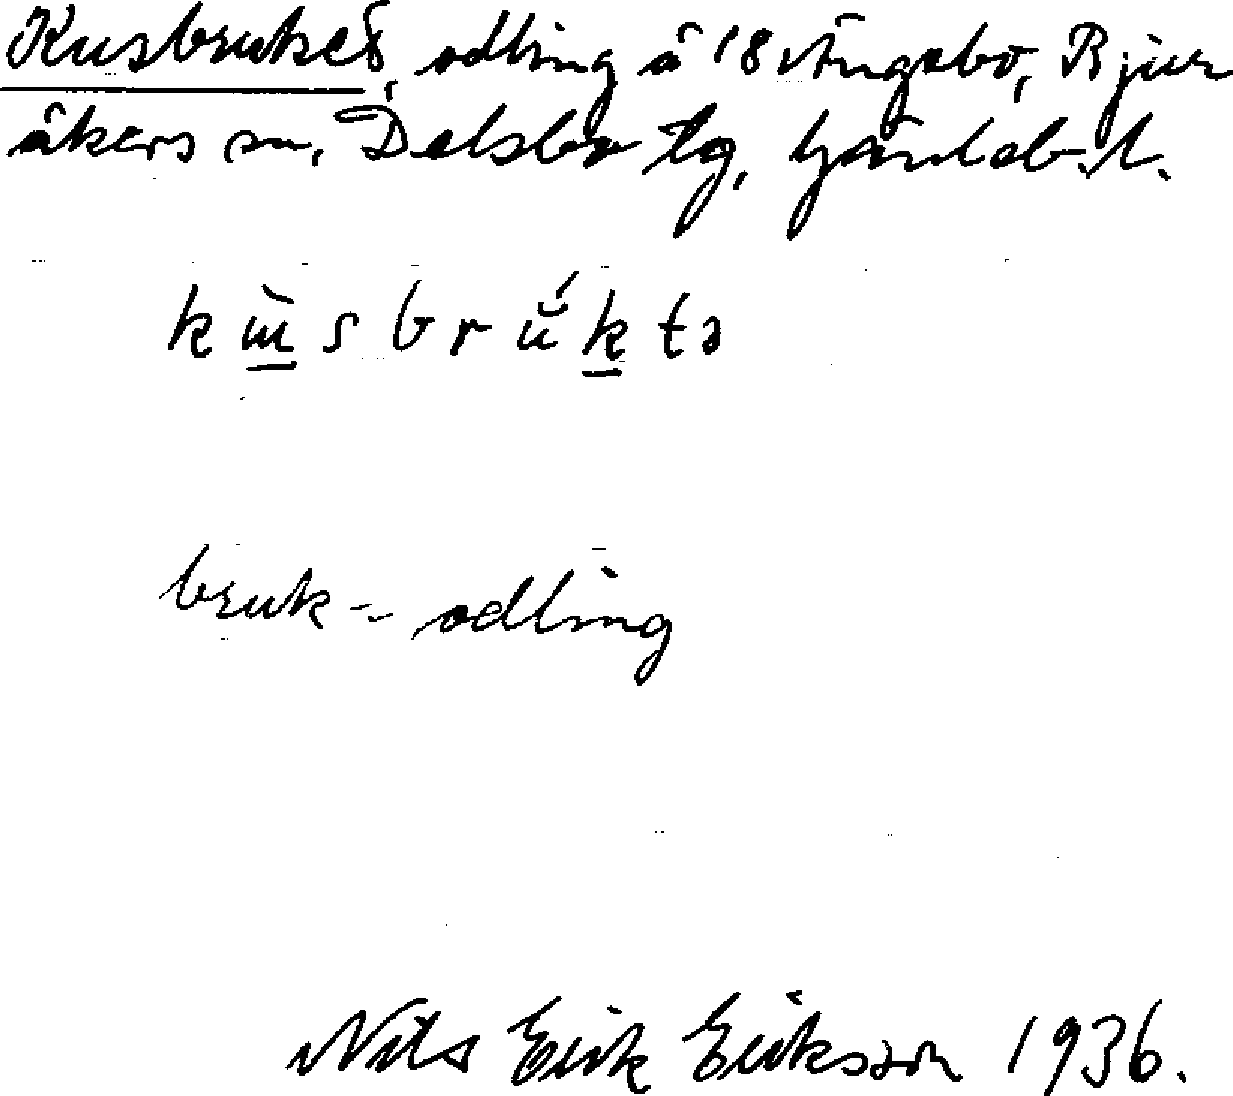 Kusbruket, odling å 18 Ängebo, Bjur
åkers sn, Delsbo tg, Gävleb. l.
kùsbrúktə
bruk = odling
Nils Erik Eriksson 1936.